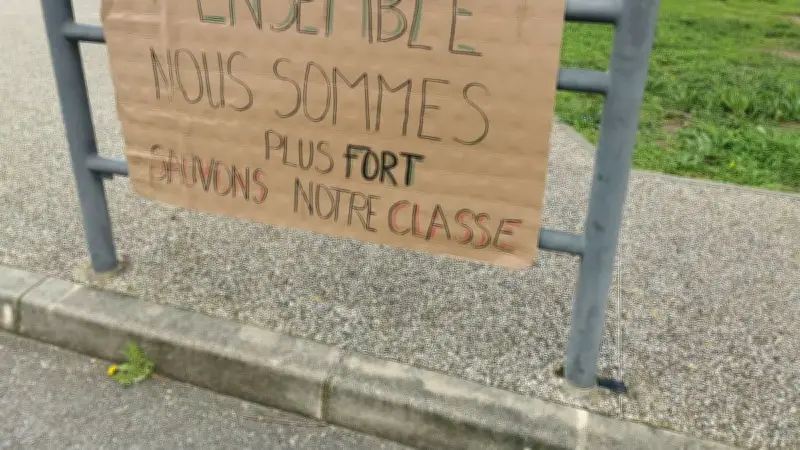 ENSEMBLE
NOUS SOMMES
PLUS FORT
SAUVONS NOTRE CLASSE